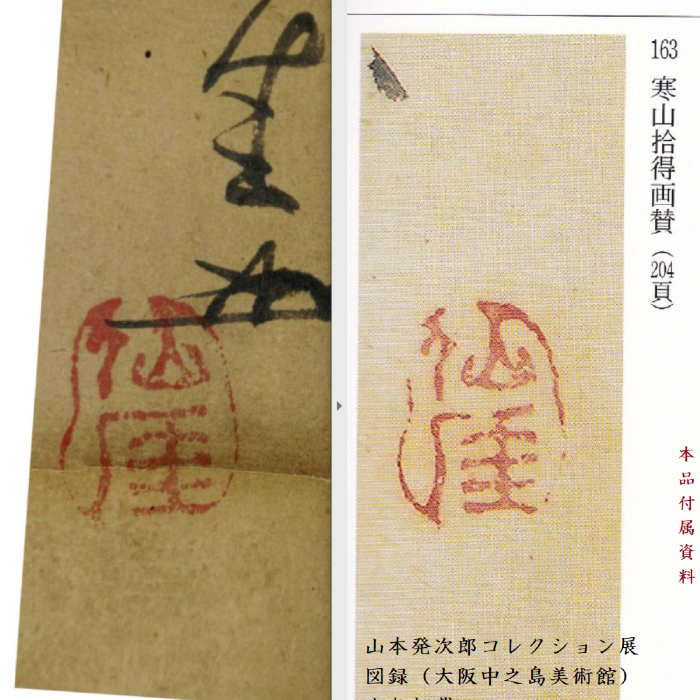 仙厓
仙厓
163 寒山拾得画賛（204頁）
本品付属資料
山本発次郎コレクション展
図録（大阪中之島美術館）